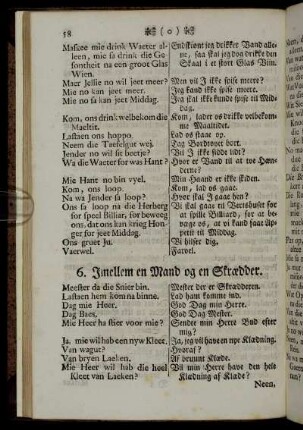 58 ( o )
Mascee mie drink Waeter al-
leen, mie sa drink die Ge-
sontheit na een groot Glas
Wien.
Maer Jellie no wil jeet meer?
Mie no kan jeet meer.
Mie no sa kan jeet Middag.
Kom, ons drink welbekom die
Maeltit.
Lastaen ons hoppo.
Neem die Teefelgut wej.
Jender no wil sit beetje?
Wa die Waeter for was Hant?
Mie Hant no bin vyel.
Kom, ons loop.
Na wa Jender sa loop?
Ons sa loop na die Herberg
for speel Billiar, for beweeg
ons, dat ons kan krieg Hon-
ger for jeet Middag.
Ons gruet Ju.
Vaerwel.
Endskiønt jeg drikker Vand alle-
ne, saa skal jeg dog drikke den
Skaal i et stort Glas Viin.
Men vil I ikke spise meere?
Jeg kand ikke spise meere.
Jeg skal ikke kunde spise til Mid-
dag.
Kom, lader os drikke velbekom-
me Maaltidet.
Lad os staae op.
Tag Bordtøyet bort.
Vil I ikke sidde lidt?
Hvor er Vand til at toe Hæn-
derne?
Min Haand er ikke skiden.
Kom, lad os gaae.
Hvor skal I gaae hen?
Vi skal gaae til Vertshuset for
at spille Billiard, for at be-
væge os, at vi kand faae Ap-
petit til Middag.
Vi hilser dig.
Farvel.
6. Imellem en Mand og en Skrædder.
Meester da die Snier bin.
Lastaen hem kom na binne.
Dag mie Heer.
Dag Baes.
Mie Heer ha stier voor mie?
Ja. mie wil hab een nyw Kleet.
Van wagut?
Van bryen Laeken.
Mie Heer wil hab die heel
Kleet van Laeken?
Mester der er Skrædderen.
Lad ham komme ind.
God Dag min Herre.
God Dag Mester.
Sendte min Herre Bud efter
mig?
Ja, jeg vil have en nye Klædning.
Hvoraf?
Af bruunt Klæde.
Vil min Herre have den heele
Klædning af Klæde?
Neen.